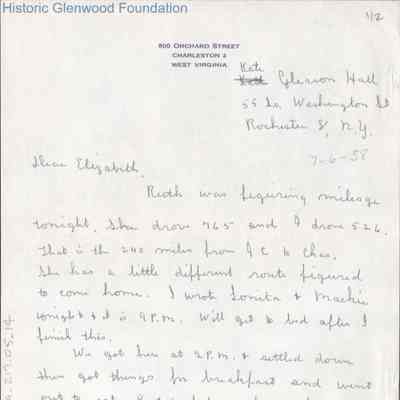 Historic Glenwood Foundation
1/2
800 ORCHARD STREET
CHARLESTON 2
WEST VIRGINIA
Kate
Gleason Hall
55 So. Washington St
Rochester 8, N.Y.
7-6-58
Dear Elizabeth,
Ruth was figuring mileage
tonight. She drove 765 and I drove 526.
That is the 240 miles from J C to Chas.
She has a little different route figured
to come home. I wrote Lonita &
tonight & it is 9 P.M. Will get to bed after I
finish this.
We got here at 2 P.M. & settled down
then got things for breakfast and went
out to eat.